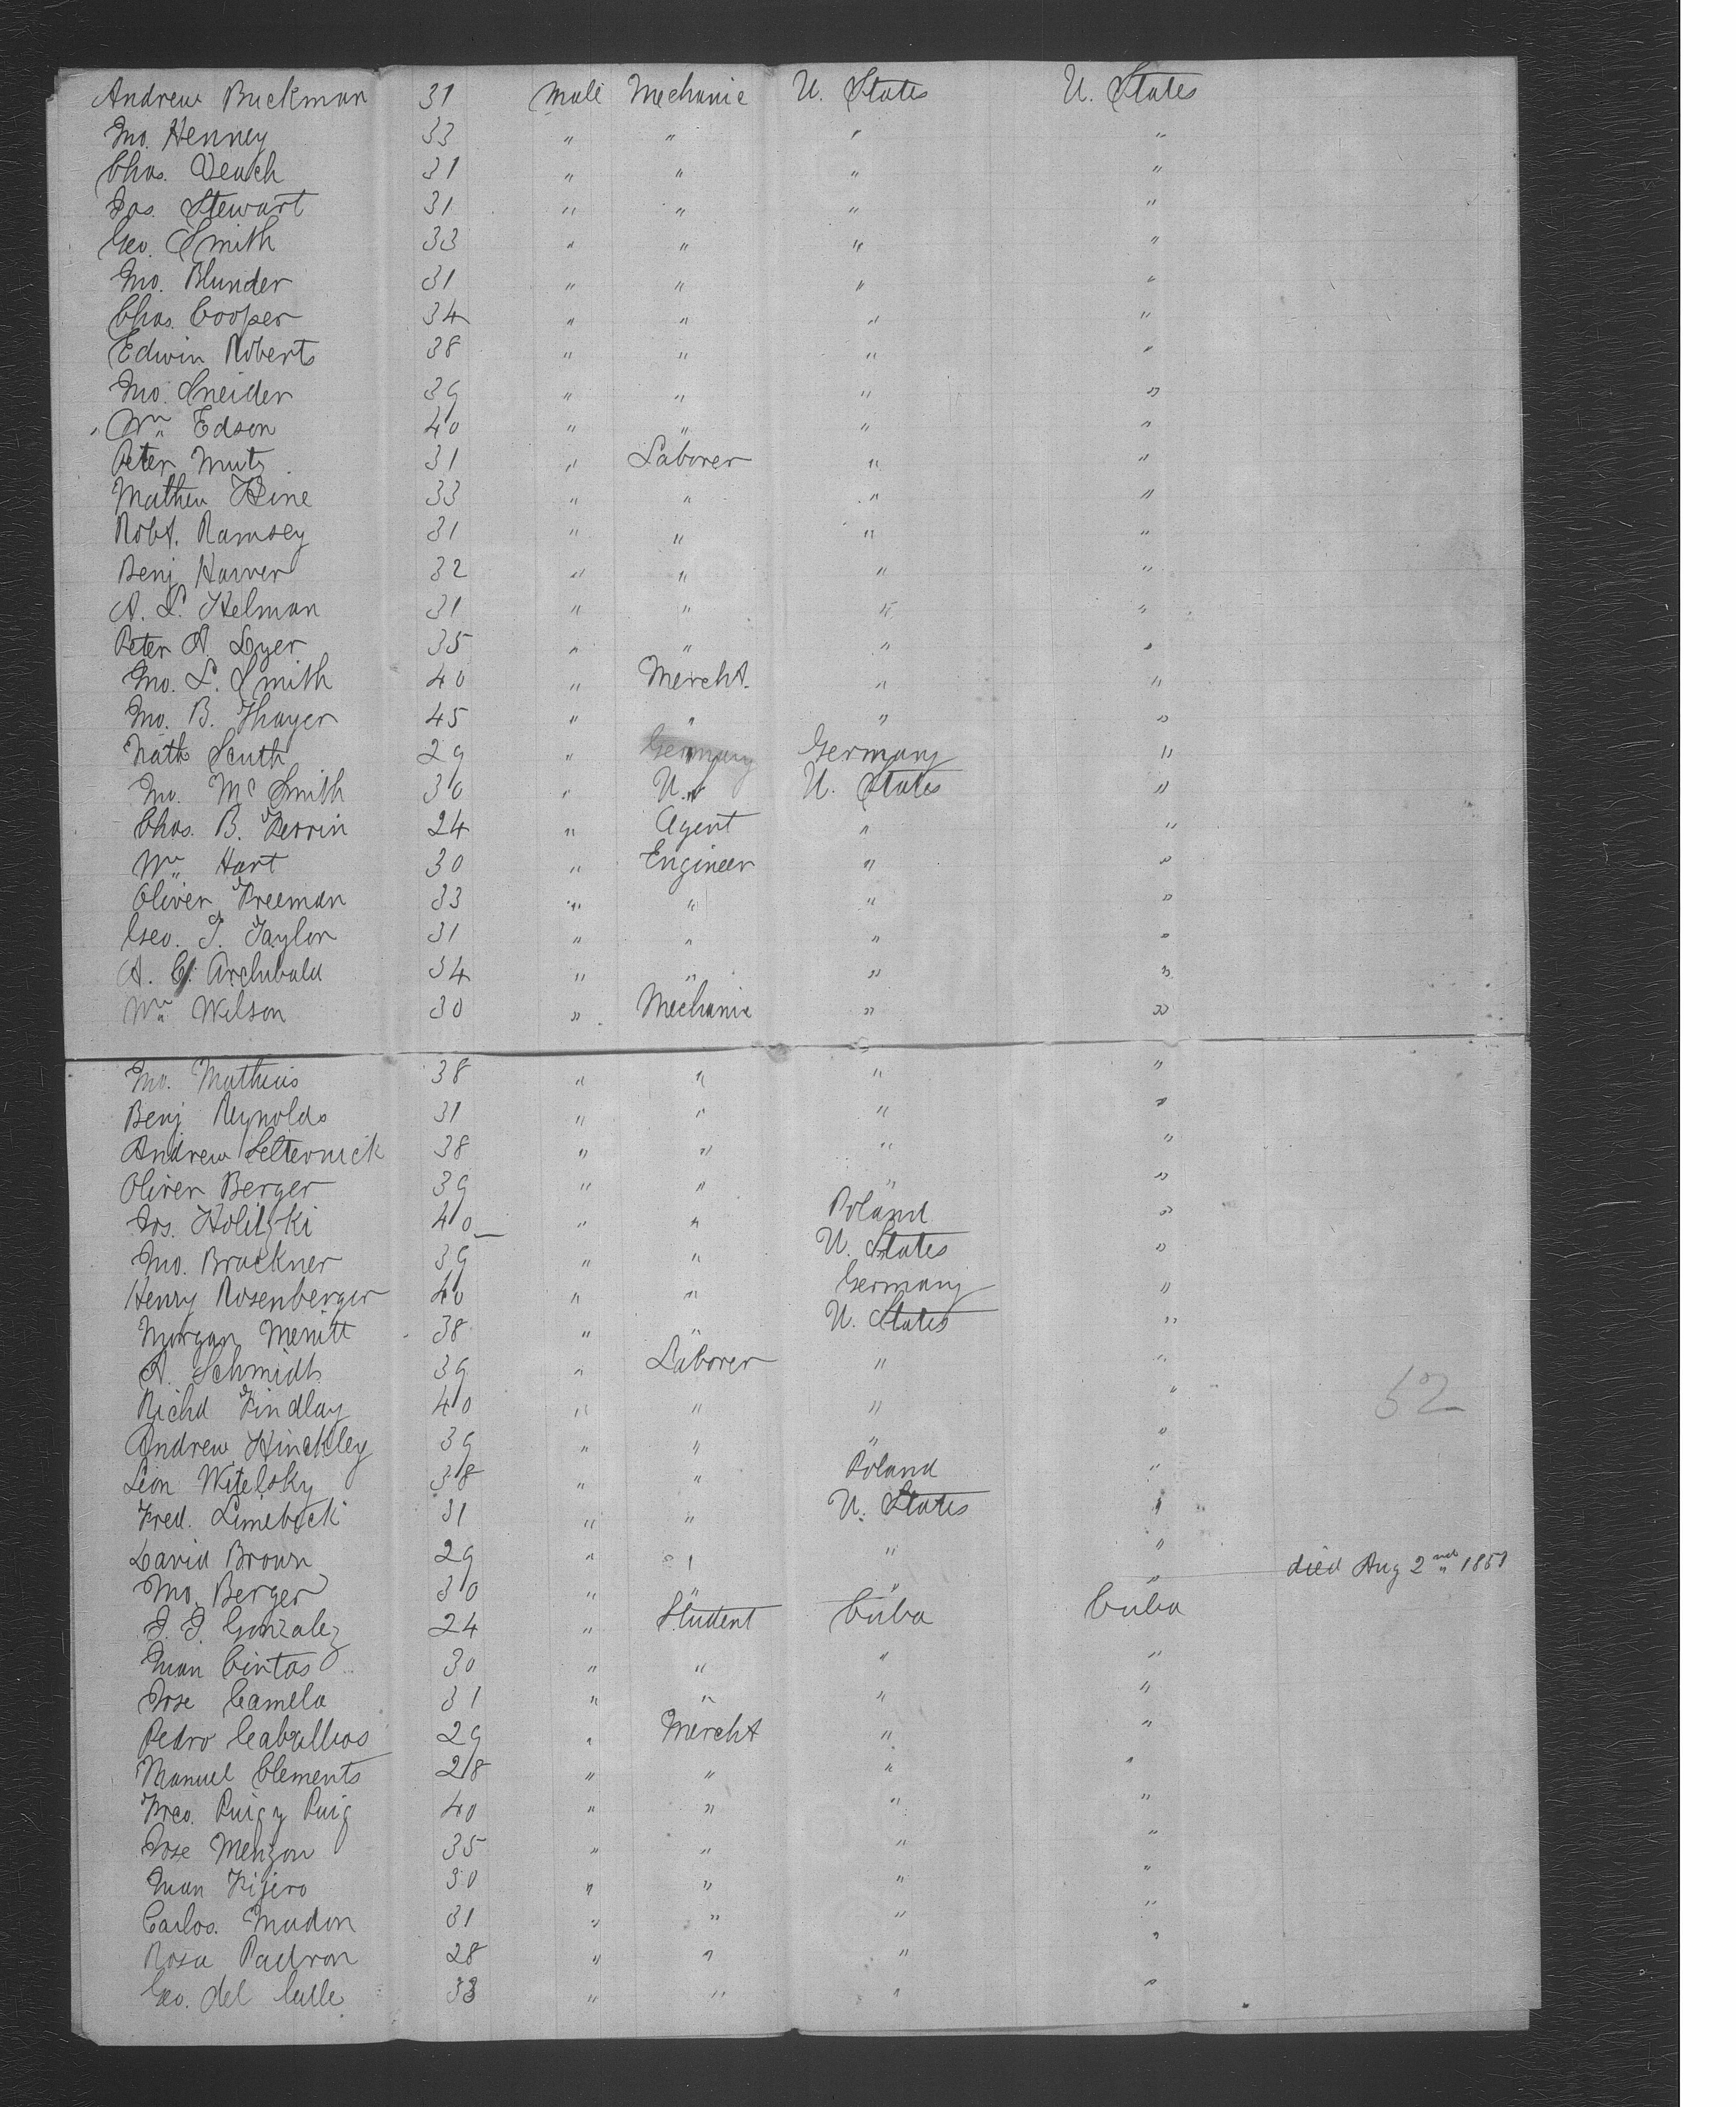 Andrew Buckman 31 Male Mechanic U. States U. States
Jno. Henney 33 " " " "
Chas. Veach 31 " " " "
Jas. Stewart 31 " " " "
Geo. Smith 33 " " " "
Jno. Blunder 31 " " " "
Chas. Cooper 34 " " " "
Edwin Roberts 38 " " " "
Jno. Sneider 39 " " " "
Wm Edson 40 " " " "
Peter Mutz 31 " Laborer " "
Mathew Hine 33 " " " "
Robt. Ramsey 31 " " " "
Benj Harver 32 " " " "
A. L. Helman 31 " " " "
Peter A. Dyer 35 " " " "
Jno. L. Smith 40 " Mercht. " "
Jno. B. Thayer 45 " " " "
Nath Scuth 29 " Germany Germany "
Jno. Mc Smith 36 " U. " U. States "
Chas. B. Perrin 24 " Agent " "
Wm Hart 30 " Engineer " "
Oliver Freeman 33 " " " "
Geo. T. Taylor 31 " " " "
A. C. Archibald 34 " " " "
Wm Wilson 30 " Mechanic " "
Jno. Mathews 38 " " " "
Benj Reynolds 31 " " " "
Andrew Selternick 38 " " " "
Oliver Berger 39 " " " "
Jos. Holitzki 40 " " Poland "
Jno. Brackner 39 " " U. States "
Henry Rosenberger 40 " " Germany "
Morgan Merritt 38 " " U. States "
A. Schmidt 39 " Laborer " "
Richd Findlay 40 " " " "
52
Andrew Hinckley 39 " " " "
Leon Witelsky 38 " " Poland "
Fred. Limebeck 31 " " U. States "
David Brown 29 " " " "
Jno. Berger 30 " " " died Aug 2nd 1851
J. J. Gonzalez 24 " Student Cuba Cuba
Juan Cintas 30 " " " "
Jose Camelo 31 " " " "
Pedro Caballios 29 " Mercht " "
Manuel Clements 28 " " " "
Frco. Puig y Puig 40 " " " "
Jose Menzon 35 " " " "
Juan Fijero 30 " " " "
Carlos. Mudon 31 " " " "
Rosa Padron 28 " " " "
Geo. del Calle 33 " " " "